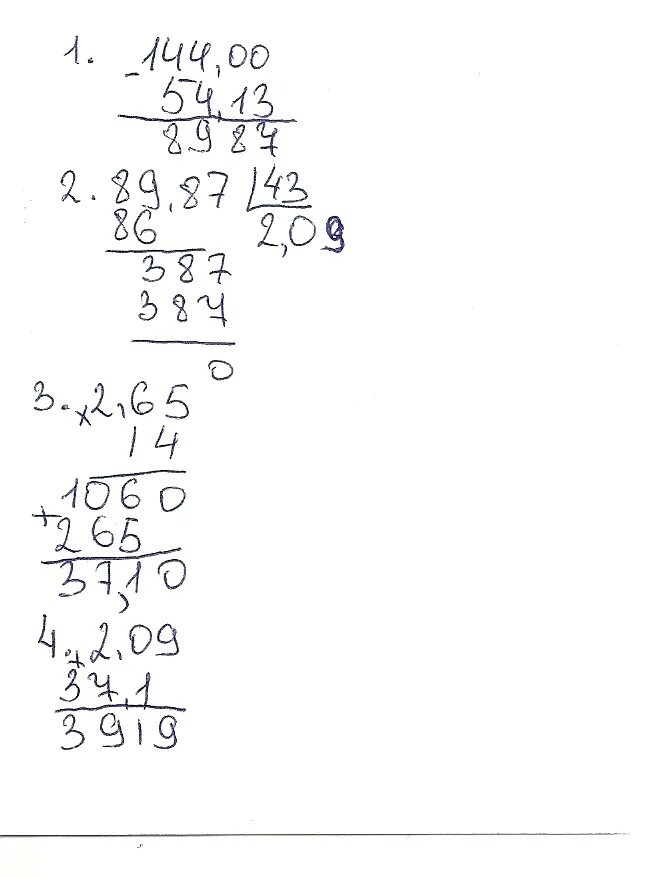 1. -144,00
54,13
8987
2. 89,87 43
86 2,09
387
387
0
3. ×2,65
14
1060
+265
37,10
4. +2,09
37,1
3919